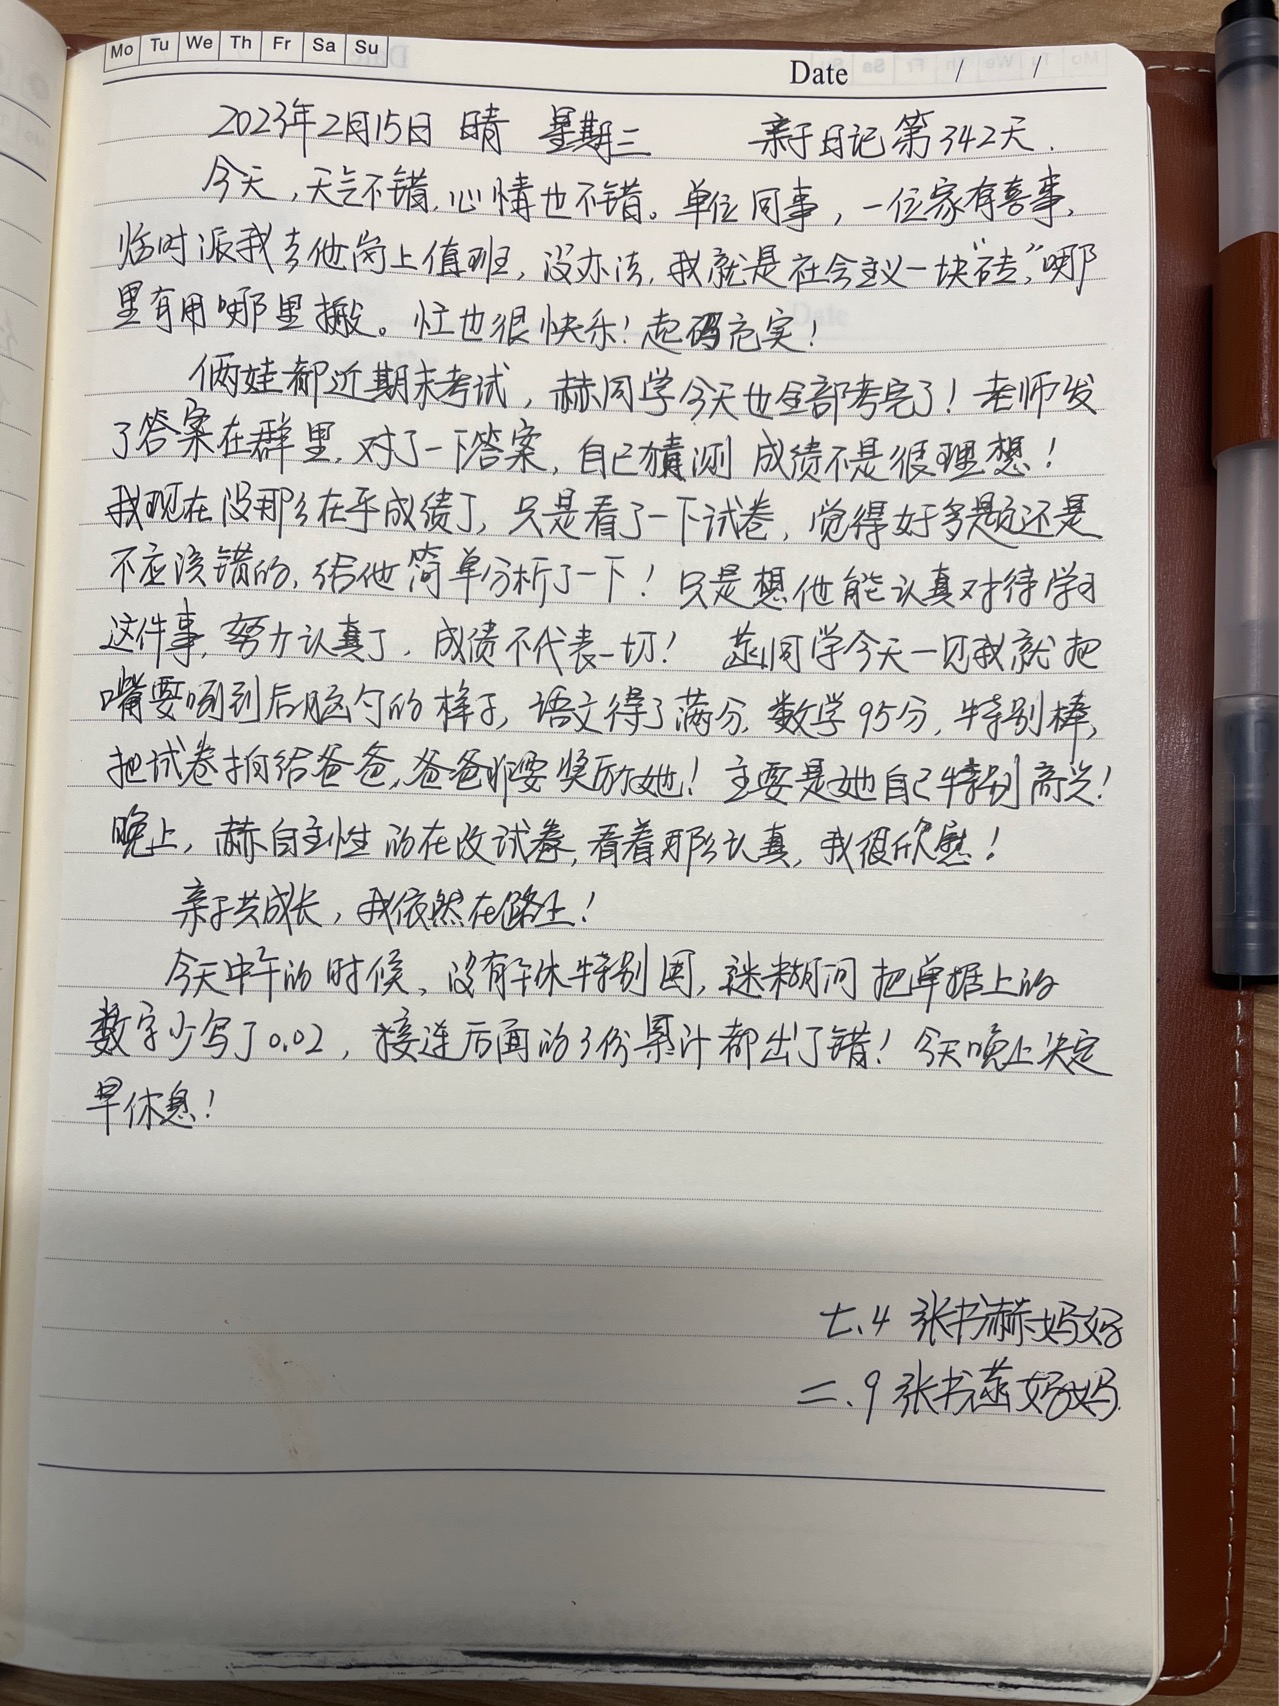 Mo Tu We Th Fr Sa Su
Date / /
2023年2月15日 晴 星期三 亲子日记第342天.
今天,天气不错,心情也不错。单位同事,一位家有喜事,
临时派我去他岗上值班,没办法,我就是社会主义一块“砖”,哪
里有用哪里搬。忙也很快乐!起码充实!
俩娃都近期末考试,赫同学今天也全部考完了!老师发
了答案在群里,对了一下答案,自己猜测成绩不是很理想!
我现在没那么在乎成绩了,只是看了一下试卷,觉得好多题还是
不应该错的,给他简单分析了一下!只是想他能认真对待学习
这件事,努力认真了,成绩不代表一切!菡同学今天一见我就把
嘴要咧到后脑勺的样子,语文得了满分,数学95分,特别棒,
把试卷拍给爸爸,爸爸非要奖励她!主要是她自己特别高兴!
晚上,赫自主性的在改试卷,看着那么认真,我很欣慰!
亲子共成长,我依然在路上!
今天中午的时候,没有午休特别困,迷糊间把单据上的
数字少写了0.02,接连后面的3份累计都出了错!今天晚上决定
早休息!
七.4 张书赫妈妈
二.9 张书菡妈妈